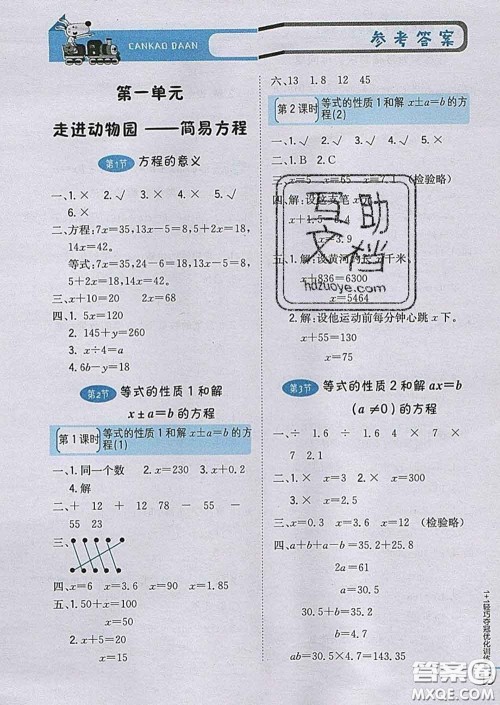 CANKAO DAAN
参考答案
第一单元
走进动物园——简易方程
第1节 方程的意义
一、1.× 2.√ 3.× 4.√ 5.√
6.×
二、方程:7x=35,13x-5=8,5+2x=18,
14x=42。
等式:7x=35,24-6=18,13x-5=8,
5+2x=18,14x=42。
三、x+10=20 2x=68
四、1. 5x=120
2. 145+y=260
3. x÷4=5
4. 6b-y=18
第2节 等式的性质1和解
x±a=b的方程
第1课时 等式的性质1和解x±a=b的方
程(1)
一、1.同一个数 2.x=230 3.x+0.2
4.解
二、+ 12 + 12 78 - 55 -
55 23
三、
四、x=6 x=3.6 x=90 x=1.85
五、1.50+x=100
x=50
2. x+5=20
x=15
六、13 1.8 12 45
第2课时 等式的性质1和解x±a=b的方
程(2)
一、1.× 2.√ 3.√ 4.× 5.√
二、1.B 2.C
三、x=5 x=65 x=7.1(检验略)
四、解:设这支笔x元。
x+1.5=5.4
x=3.9
五、1.解:设黄河约长x千米。
x+836=6300
x=5464
2.解:设他运动前每分钟心跳x下。
x+55=130
x=75
互助文档
hdzuoye.com
第3节 等式的性质2和解ax=b
(a≠0)的方程
一、÷ 1.6 ÷ 1.6 4 × 7 ×
7 2.1
二、1.× 2.x=30 3.× x=300
三、x=0.9 x=3.6 x=12 (检验略)
四、a+b+a-b=35.2+25.8
2a=61
a=30.5
30.5+b=35.2
b=4.7
ab=30.5×4.7=143.35
1+1轻巧夺冠优化训练
答案圈
MXQE.COM